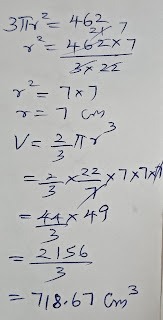 3πr² = 462
21 7
r² = 462×7
3×22
r² = 7×7
r = 7 cm
V = 2/3 πr³
= 2/3 × 22/7 × 7×7×7
= 44/3 × 49
= 2156/3
= 718.67 cm³